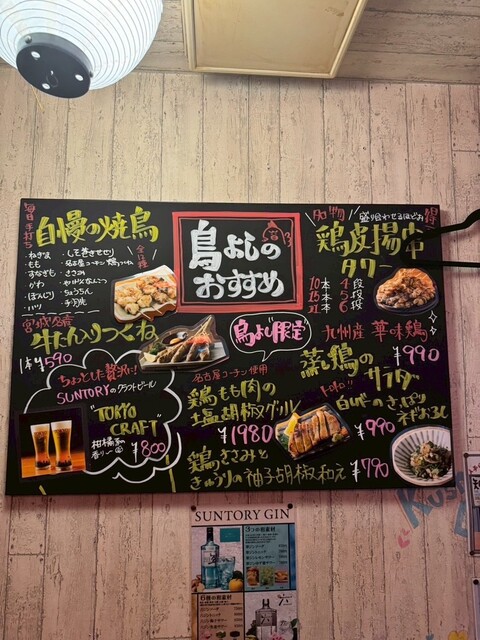 鳥よしの
おすすめ
毎日手打ち
自慢の焼鳥
・ねぎま
・もも
・すなぎも
・かわ
・ぼんじり
・ハツ
・しそ巻きせせり
・ささみ
・やげんなんこつ
・ちょうちん
・手羽先
牛たん入りつくね
1本¥590
ちょっとした贅沢に!
SUNTORYのクラフトビール
"TOKYO
CRAFT"
柑橘系の
香り〜
¥800
名物
盛り合わせるほどお得
鶏皮揚串
タワー
10本 4段
15本 5段
21本 6段
鳥よし限定
名古屋コーチン使用
鶏もも肉の
塩胡椒グリル
¥1980
鶏ささみと
きゅうりの柚子胡椒和え
¥790
九州産 華味鶏
蒸し鶏の
サラダ
¥990
白ひげのさっぱり
ねぎおろし
¥990
SUNTORY GIN